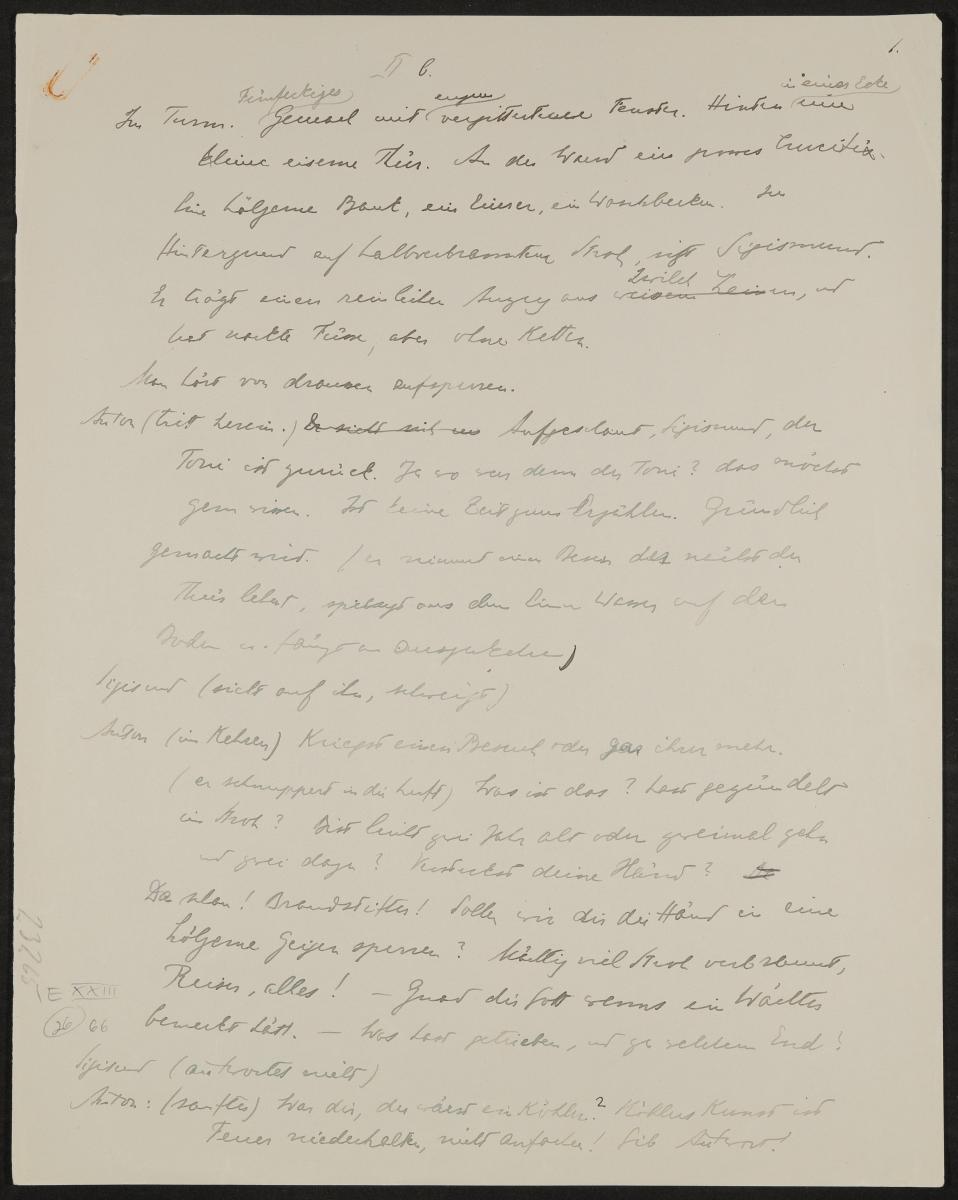 1.
II b.
Fünfeckiges engen in einer Ecke
Im Turm. Gemach mit vergittertem Fenster. Hinten eine
kleine eiserne Thür. An der Wand ein grosses Crucifix.
Eine hölzerne Bank, ein Eimer, ein Waschbecken. Im
Hintergrund auf halbverbranntem Stroh, sitzt Sigismund.
Zwilch
Er trägt einen reinlichen Anzug aus weisem Leinen, und
hat nackte Füsse, aber ohne Ketten.
Man hört von draussen aufsperren.
Anton (tritt herein.) Er sieht sich um Aufgeschaut, Sigismund, der
Toni ist zurück. Ja wo war denn der Toni? das möchst
gern wissen. Ist keine Zeit zum Erzählen. Gründlich
gemacht wird. (er nimmt einen Besen der nächst der
Thür lehnt, spritzt aus dem Eimer Wasser auf den
Boden u. fängt an auszukehren)
Sigismund (sieht auf ihn, schweigt)
Anton (im Kehren) Kriegst einen Besuch oder gar ihrer mehr.
(er schnuppert in die Luft) Was ist das? hast gezündelt
im Stroh? Bist leicht zwei Jahr alt oder zweimal zehn
und zwei dazu? Versteckst deine Händ? Da
Da schau! Brandstifter! Sollen wir dir die Händ in eine
hölzerne Geigen sperren? Mächtig viel Stroh verbrannt,
Reiser, alles! — Gnad dir Gott wenns ein Wächter
bemerkt hätt. — Was hast getrieben, und zu welchem End?
Sigismund (antwortet nicht)
Anton: (sanfter) War dir, du wärst ein Köhler? Köhlers Kunst ist
Feuer niederhalten, nicht anfachen! Gib Antwort!
E XXIII
26 66